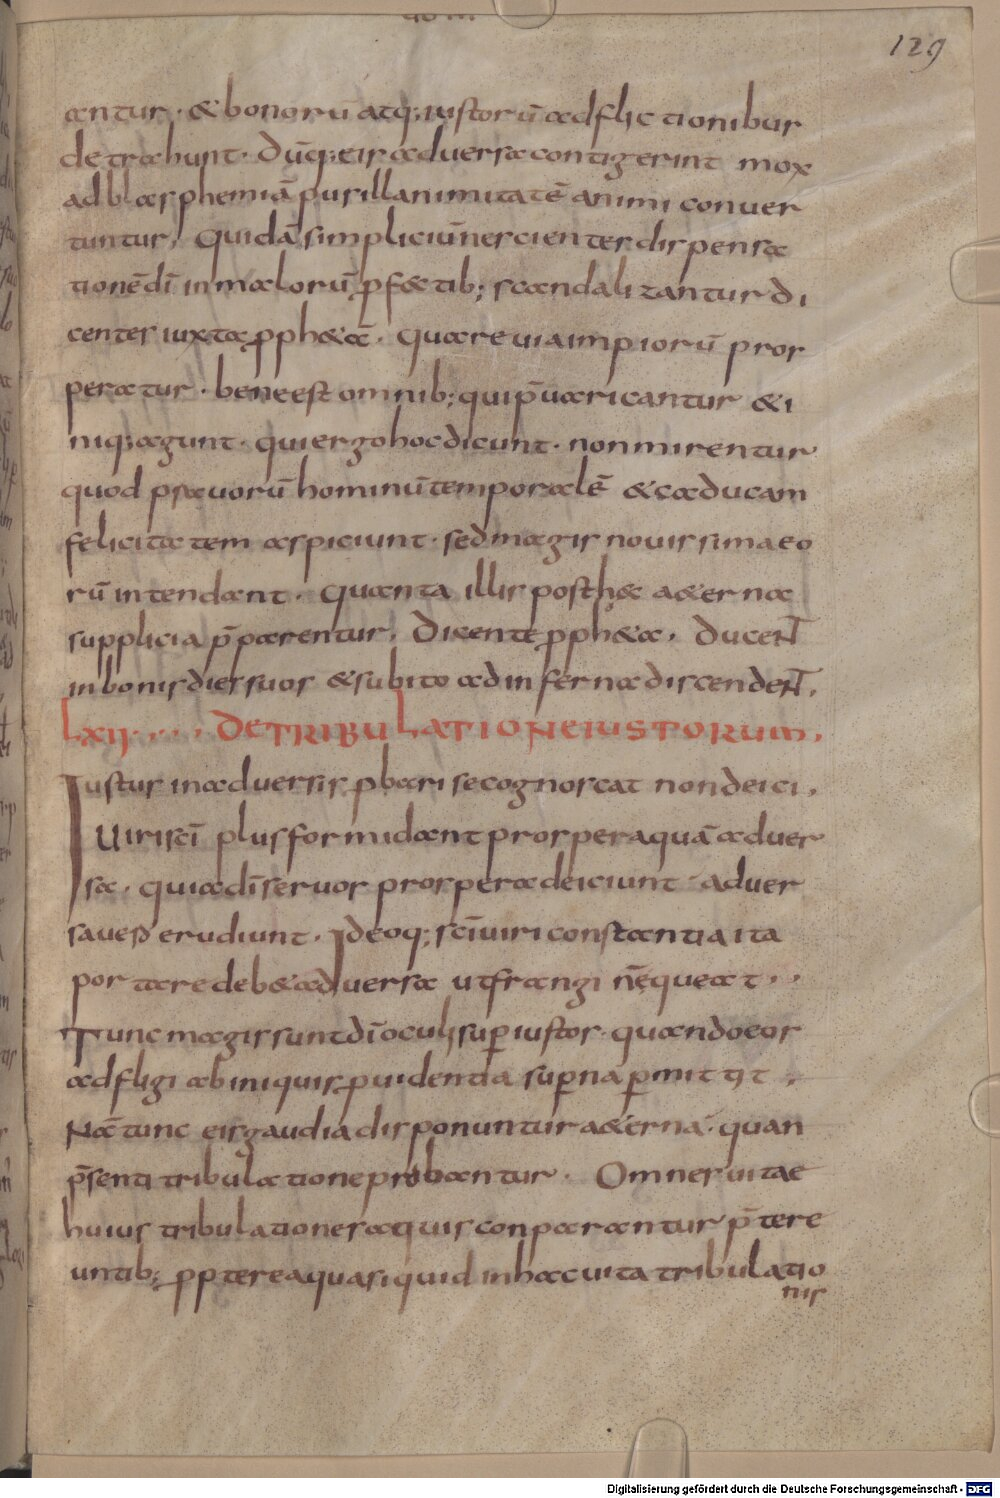 129
antur · & bonorū atq; iustorū adflictionibus
detrahunt · Dūq; eis aduersa contigerint mox
ad blasphemiā pusillanimitatē animi conuer
tuntur · Quidā simpliciū nescientes dispensa
tionē dī in malorū ꝓfectib; scandalizantur di
centes iuxta ꝓph&ā · Quare uia impiorū pros
peratur · bene est omnib; qui p̄uaricantur & i
niq; agunt · qui ergo hoc dicunt · non mirentur
quod prauorū hominū temporalē & caducam
felicitatem aspiciunt · sed magis nouissima eo
rū intendant · Quanta illis posth& a&erna
supplicia p̄parentur · Dicente ꝓph&a · Ducēt
in bonis dies suos & subito ad inferna discendēt ·
Lxij · · · · DE TRIBULATIONE IUSTORUM ·
Iustus in aduersis ꝓbari se cognoscat non deici ·
Uiri scī plus formidant prospera quā aduer
sa · quia dī seruos prospera deiciunt · aduer
sa uero erudiunt · Ideoq; scī uiri constantia ita
portare deb& aduersa ut frangi nēqueat · ·
Tunc magis sunt dī oculi super iustos · quando eos
adfligi ab iniquis ꝓuidentia superna permittit ·
Nā tunc eis gaudia disponuntur a&erna · quan
p̄senti tribulatione probantur · Omnes uitae
huius tribulationes aequis conparantur p̄tere
untib; ꝓpterea quasi quid in hac uita tribulatio
nis
Digitalisierung gefördert durch die Deutsche Forschungsgemeinschaft - DFG